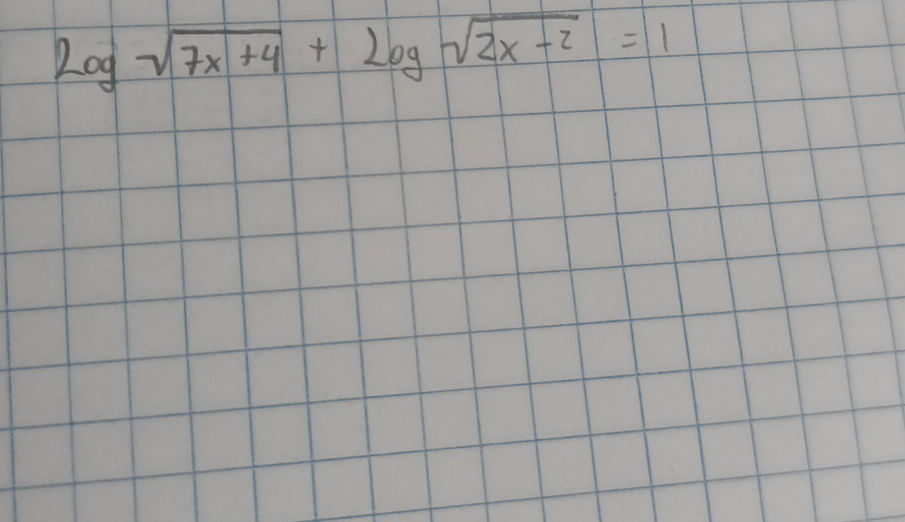 Log √(7x + 4) + Log √(2x - 2) = 1